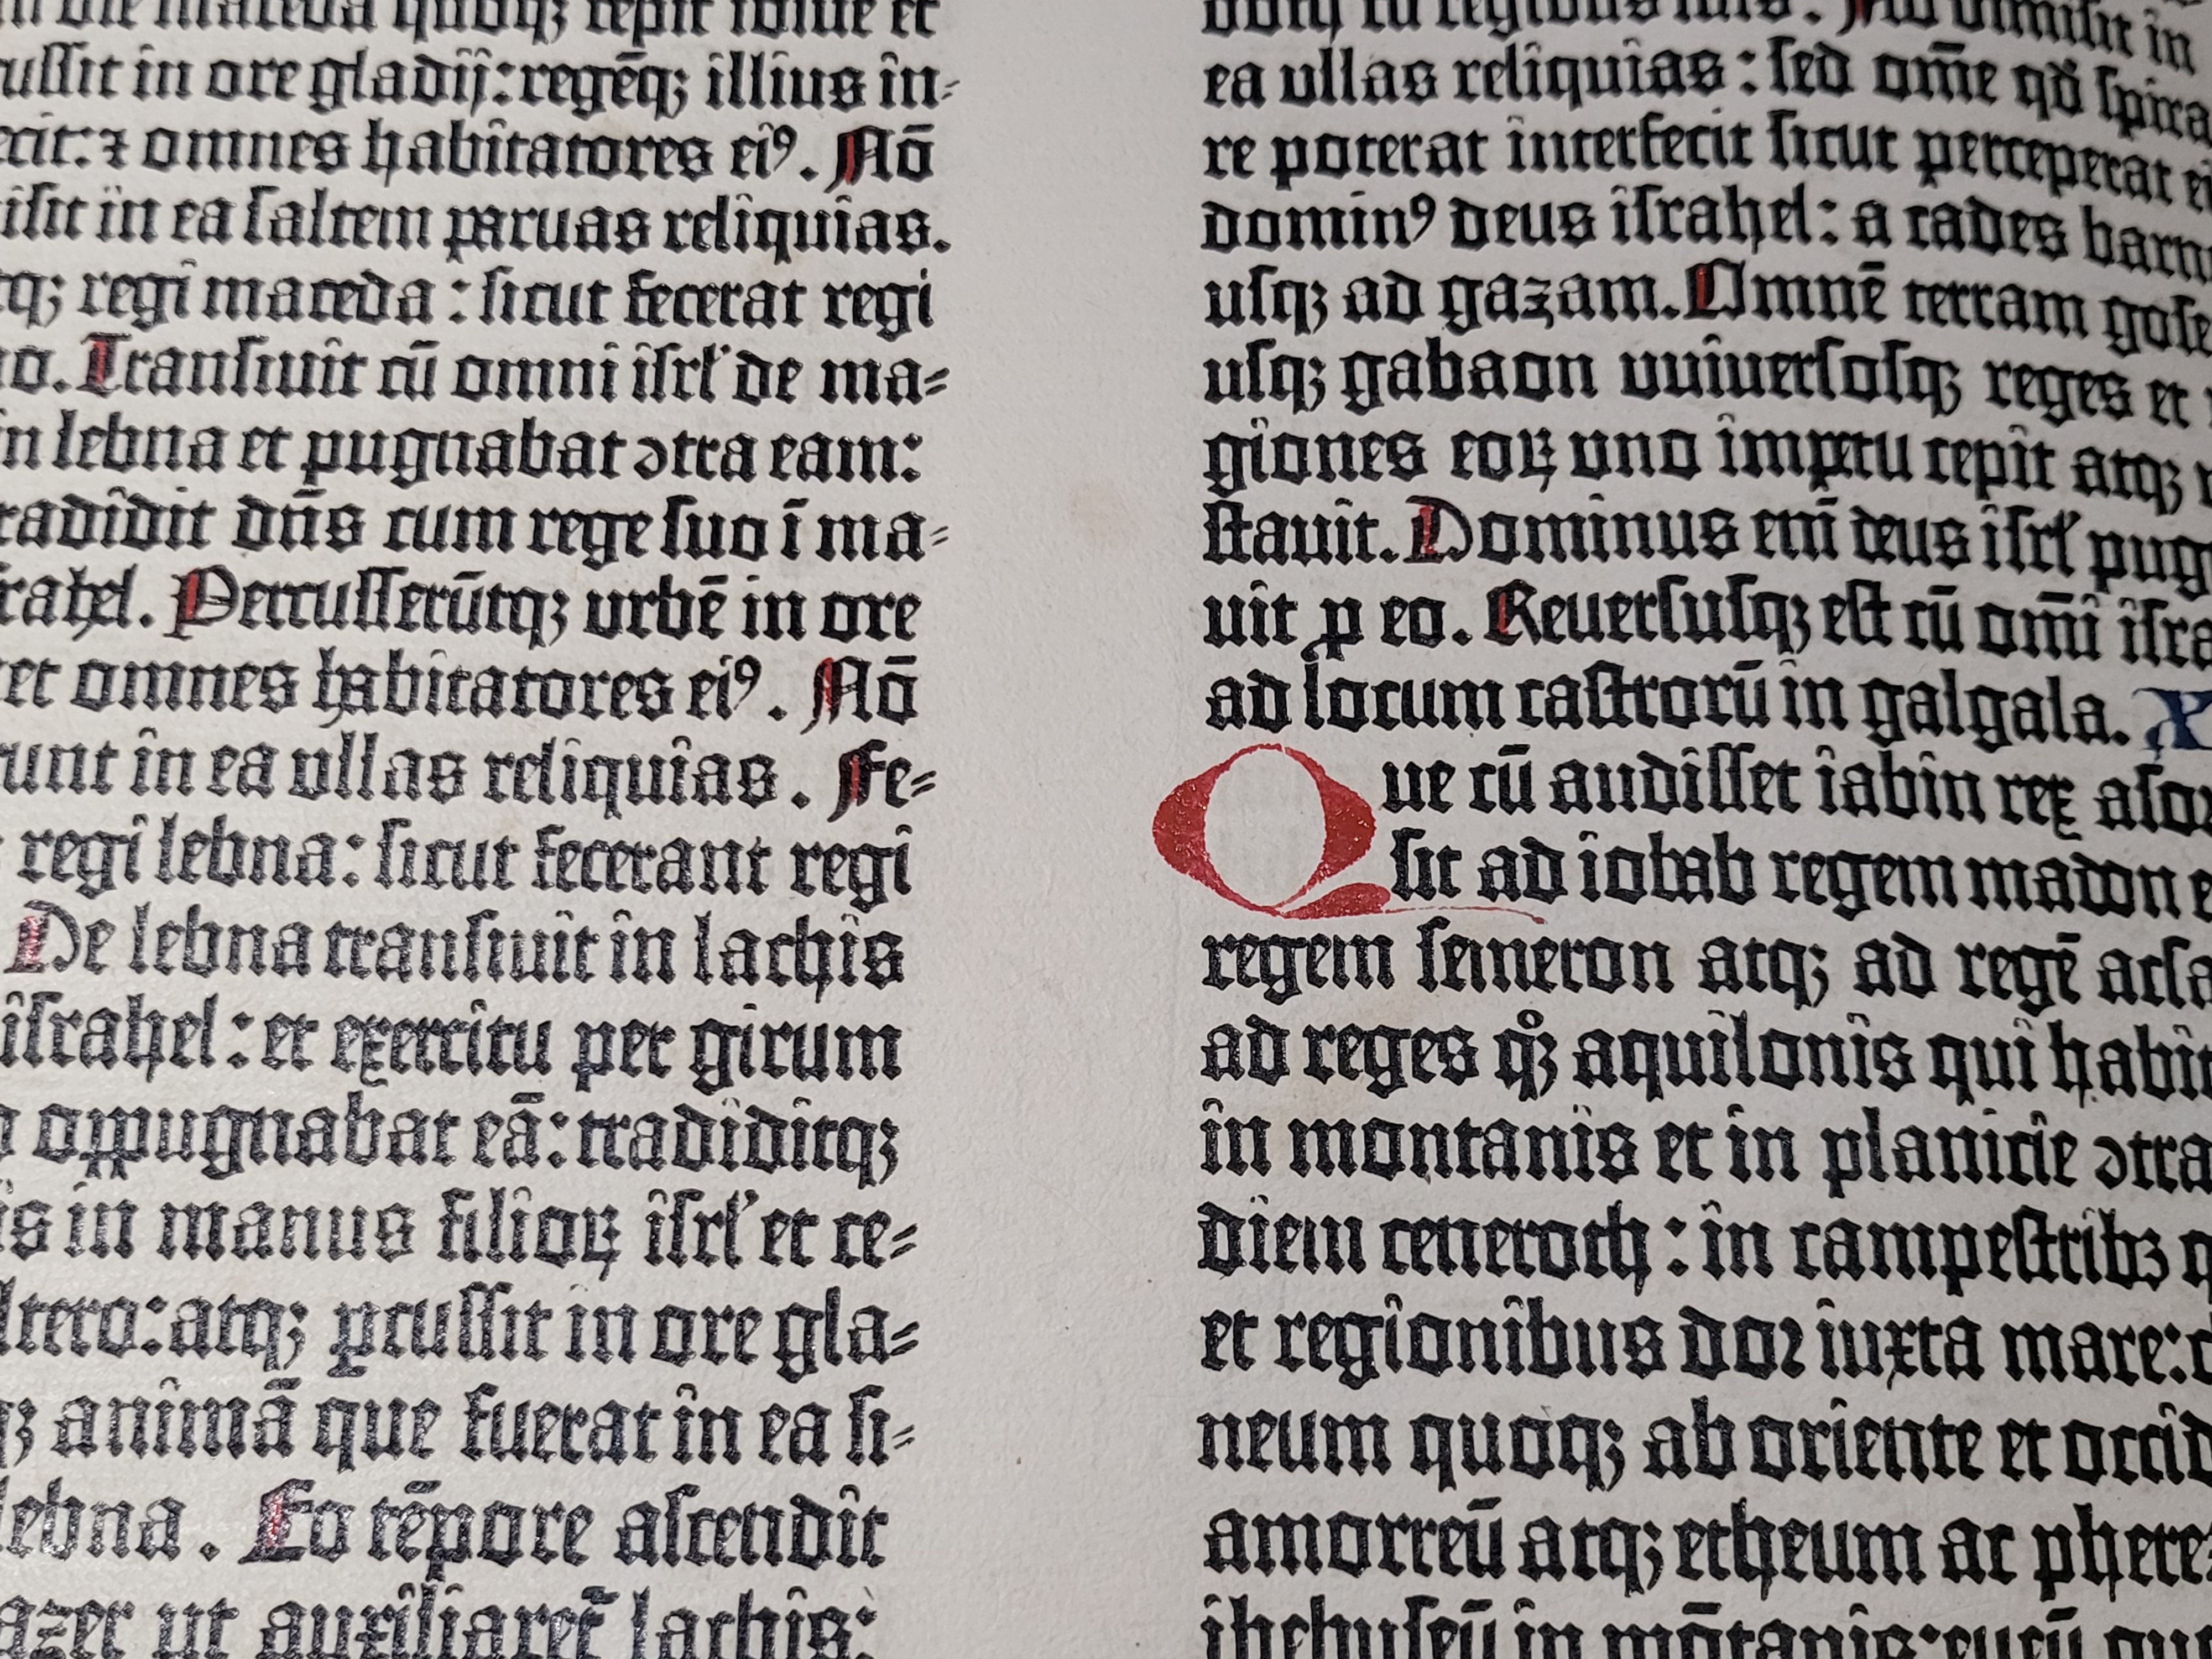 die maceda quoqꝫ cepit iosue et
cussit in ore gladij: regēqꝫ illius in⸗
ꝛ omnes habitatores eiꝰ. Nō
in ea saltem paruas reliquias.
regi maceda: sicut fecerat regi
Transiuit cū omni isrl̕ de ma⸗
in lebna et pugnabat ↄtra eam:
tradidit dn̄s cum rege suo ī ma⸗
Percusserūtqꝫ urbē in ore
et omnes habitatores eiꝰ. Nō
in ea ullas reliquias. Fe⸗
regi lebna: sicut fecerant regi
De lebna transiuit in lachis
israhel: et exercitu per girum
oppugnabat eā: tradiditqꝫ
in manus filioꝝ isrl̕ et ce⸗
atqꝫ ꝑcussit in ore gla⸗
animā que fuerat in ea si⸗
lebna. Eo tēpore ascendit
ut auxiliaret̄ lachis:
cū regibus suis. Nō dimisit in
ea ullas reliquias: sed om̄e qd̕ spira
re poterat interfecit sicut preceperat ei
dominꝰ deus israhel: a cades barn
usqꝫ ad gazam. Omnē terram gose
usqꝫ gabaon uniuersosqꝫ reges et
giones eoꝝ uno impetu cepit atqꝫ
stauit. Dominus eni̅ deus isrl̕ pug
uit ꝓ eo. Reuersusqꝫ est cū om̄i isra
ad locum castrorū in galgala. X
Que cū audisset iabin rex asor
sit ad iobab regem madon
regem semeron atqꝫ ad regē acsa
ad reges qͦꝫ aquilonis qui habit
in montanis et in planicie ↄtra
diem ceneroth: in campestribꝫ
et regionibus doꝛ iuxta mare:
neum quoqꝫ ab oriente et occid
amorreū atqꝫ etheum ac phere⸗
in mōtanis: eueū